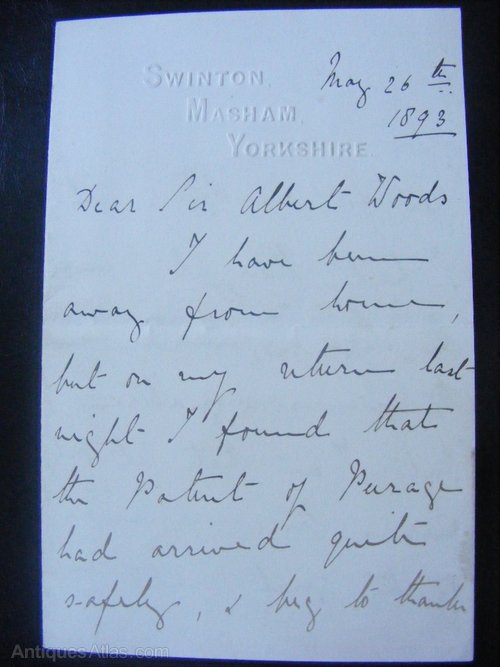 SWINTON,
MASHAM,
YORKSHIRE.
May 26th
1893
Dear Sir Albert Woods
I have been
away from home,
but on my return last
night I found that
the Patent of Peerage
had arrived quite
safely, & beg to thank
AntiquesAtlas.com